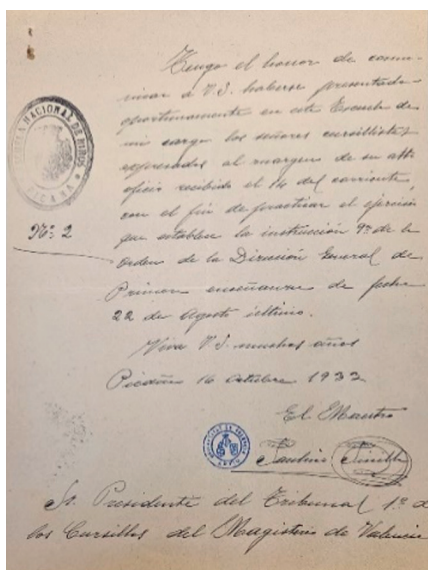 Tengo el honor de comu-
nicar a V.I. haberse presentado
oportunamente en esta Escuela de
mi cargo los señores cursillistas
expresados al margen de su att.
oficio recibido el 14 del corriente,
con el fin de practicar el ejercicio
que establece la instrucción 9ª de la
orden de la Dirección General de
Primera enseñanza de fecha
22 de Agosto último.
Viva V.I. muchos años
Picaña 16 Octubre 1933
El Maestro
Paulino
Sr. Presidente del Tribunal 1º d
los Cursillos del Magisterio de Valencia
ESCUELA NACIONAL DE NIÑOS
PICAÑA
Nº 2